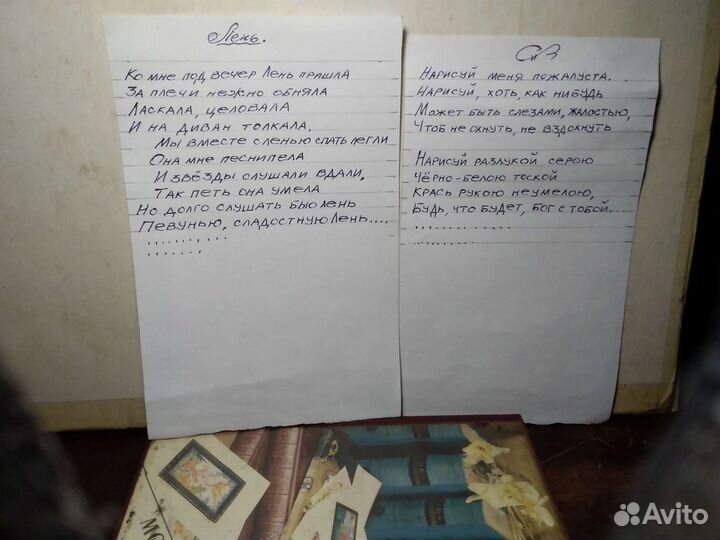 Лень.
Ко мне под вечер Лень пришла
За плечи нежно обняла
Ласкала, целовала
И на диван толкала.
Мы вместе с ленью спать легли
Она мне песни пела
И звёзды слушали вдали,
Так петь она умела
Но долго слушать было лень
Певунью, сладостную Лень....
.......,...
.......,
Нарисуй меня пожалуста.
Нарисуй, хоть, как нибудь
Может быть слезами, жалостью,
Чтоб не охнуть, не вздохнуть
Нарисуй разлукой серою
Чёрно-белою тоской
Крась рукою неумелою,
Будь, что будет, Бог с тобой....
Avito